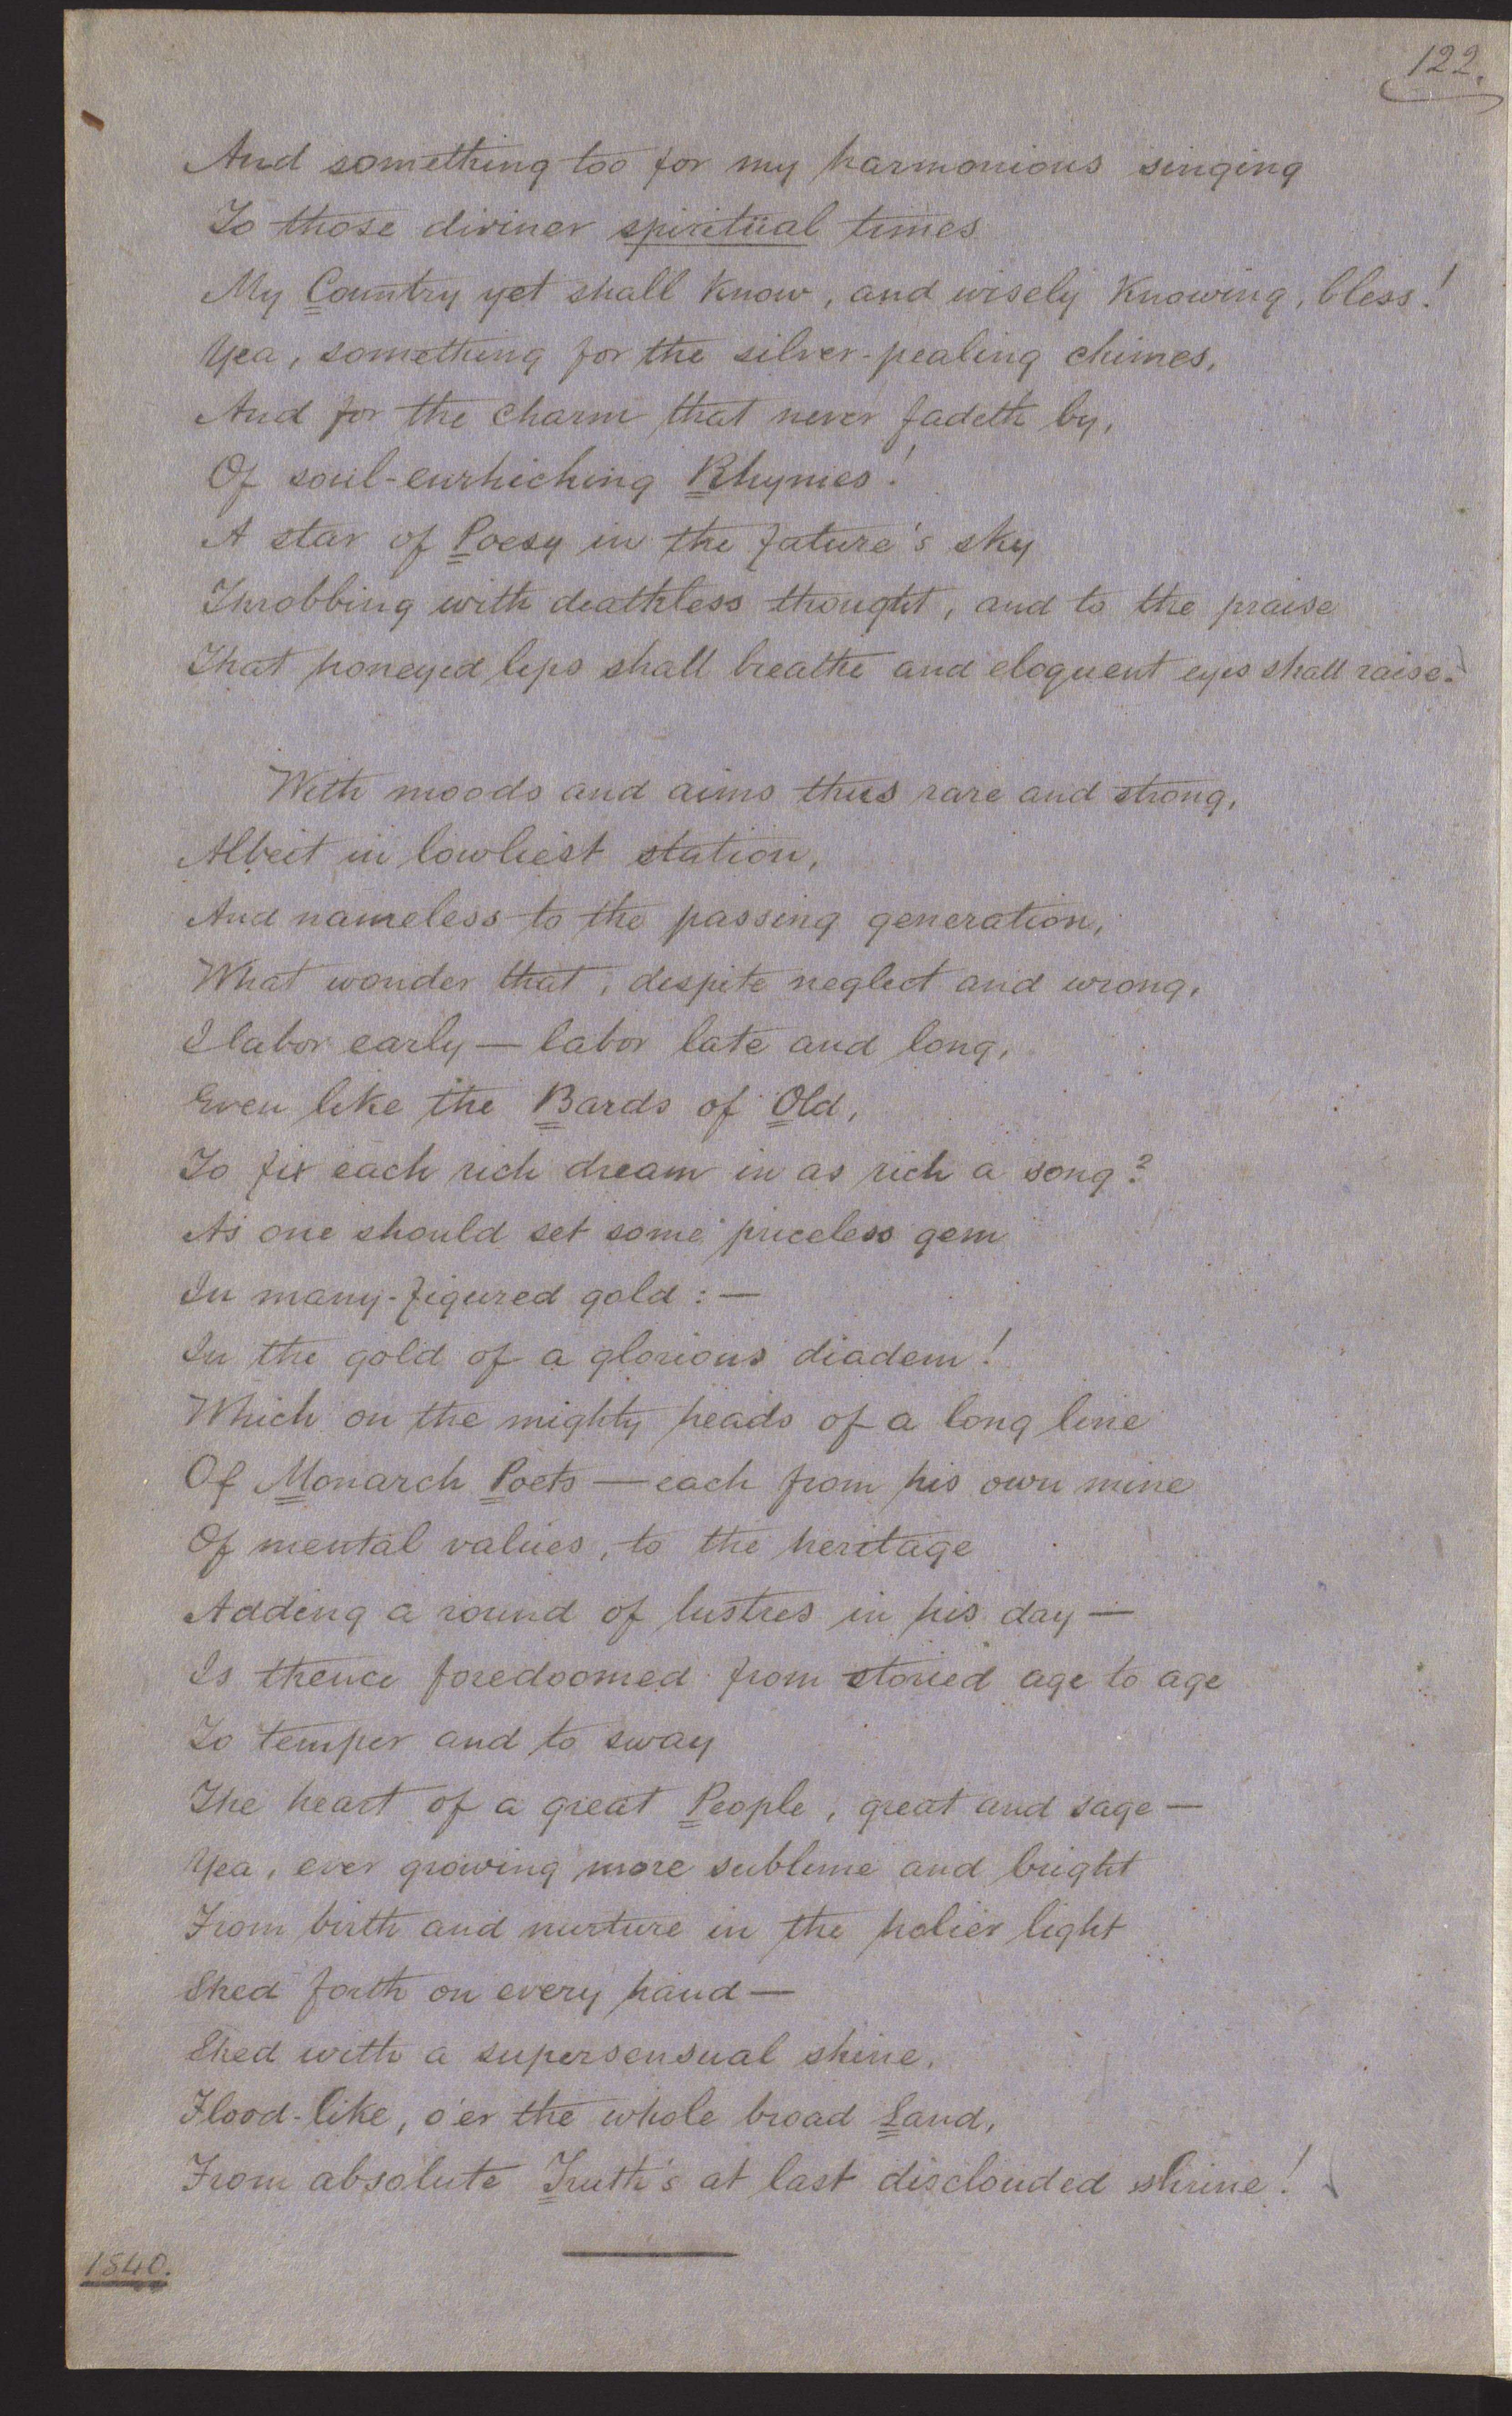 122.
And something too for my harmonious singing
To those diviner spiritual times
My Country yet shall know, and wisely knowing, bless!
Yea, something for the silver-pealing chimes,
And for the charm that never fadeth by,
Of soul-enrhiching Rhymes!
A star of Poesy in the future's sky
Throbbing with deathless thought, and to the praise
That honeyed lips shall breathe and eloquent eyes shall raise.
With moods and aims thus rare and strong,
Albeit in lowliest station,
And nameless to the passing generation,
What wonder that, despite neglect and wrong,
I labor early — labor late and long,
Even like the Bards of Old,
To fix each rich dream in as rich a song?
As one should set some priceless gem
In many-figured gold: —
In the gold of a glorious diadem!
Which on the mighty heads of a long line
Of Monarch Poets — each from his own mine
Of mental values, to the heritage
Adding a round of lustres in his day —
Is thence foredoomed from storied age to age
To temper and to sway
The heart of a great People, great and sage —
Yea, ever growing more sublime and bright
From birth and nurture in the holier light
Shed forth on every hand —
Shed with a supersensual shine,
Flood-like, o'er the whole broad Land,
From absolute Truth's at last disclouded shrine!
1840.